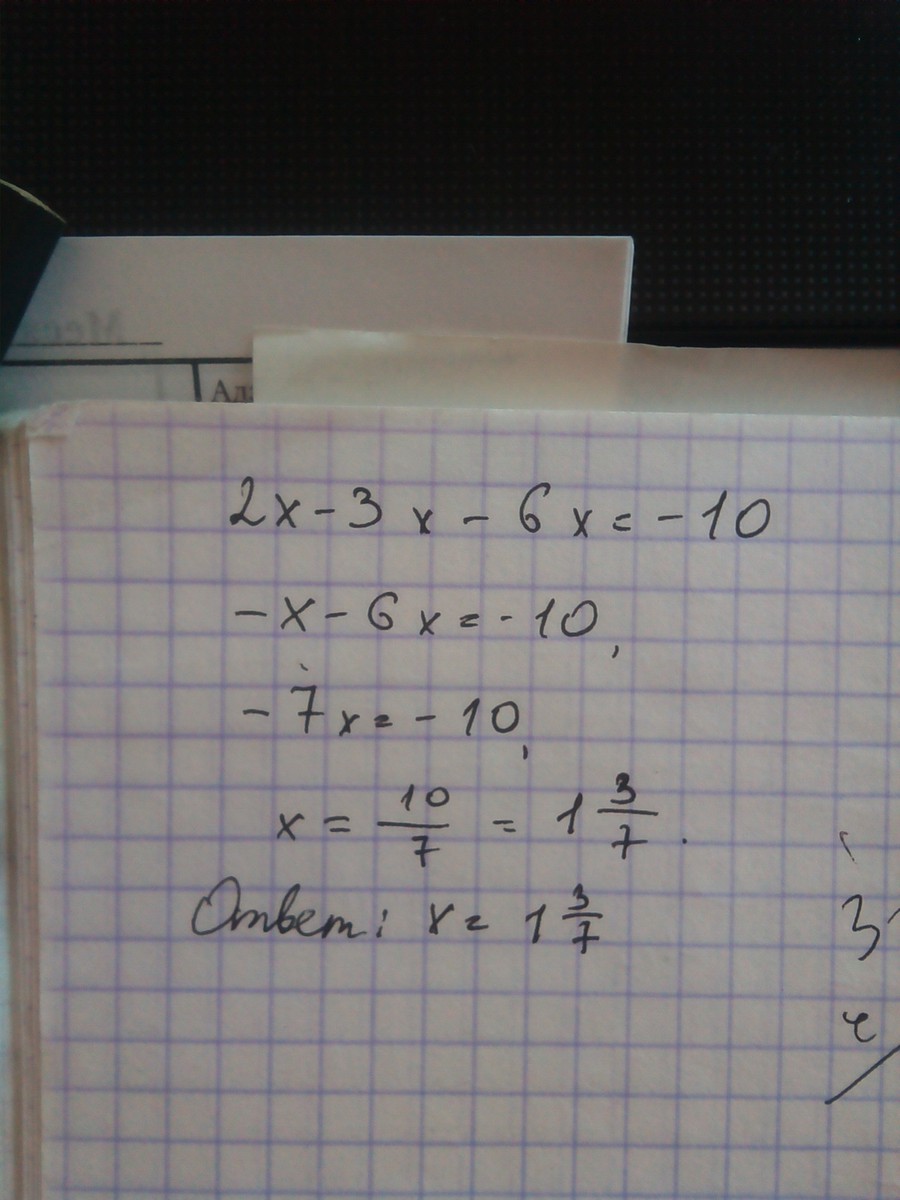 Ад
2x - 3x - 6x = -10
-x - 6x = -10,
-7x = -10,
x = 10/7 = 1 3/7.
Ответ: x = 1 3/7
3